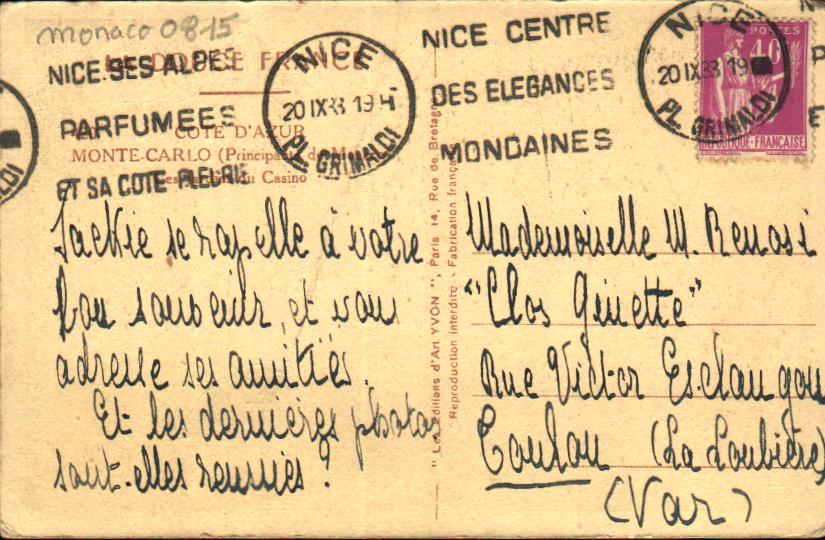 monaco 0815
LA DOUCE FRANCE
NICE SES ALPES
PARFUMEES
ET SA COTE FLEURIE
NICE
20 IX 33 19 H
PL. GRIMALDI
NICE CENTRE
DES ELEGANCES
MONDAINES
NICE
20 IX 33 19
PL. GRIMALDI
POSTES
40
FRANÇAISE
COTE D'AZUR
MONTE-CARLO (Principauté de
du Casino
Jackie se rappelle à votre
bon souvenir, et vous
adresse ses amitiés.
Et les dernières photos
sont-elles réussies ?
" Les Éditions d'Art YVON ", Paris 14, Rue de Bretagne
Reproduction interdite - Fabrication française
Mademoiselle M. Renosi
"Clos Ginette"
Rue Victor Esclangon
Toulon (La Loubière)
(Var)